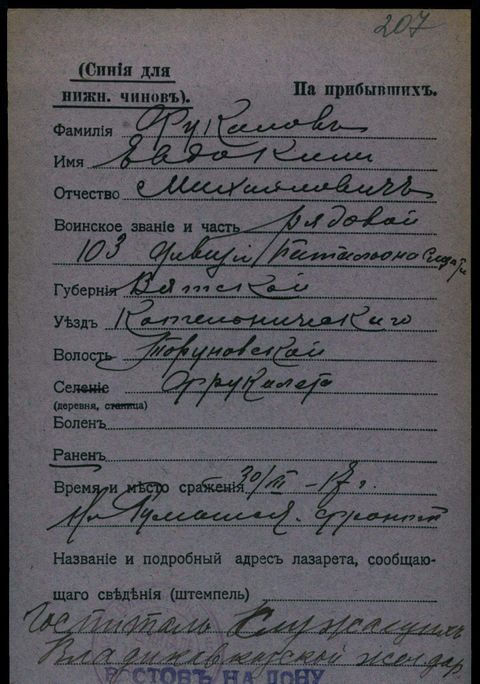 207
(Синія для
нижн. чиновъ).
На прибывшихъ.
Фамилія Фукаловъ
Имя Евдокимъ
Отчество Михайловичъ
Воинское званіе и часть рядовой
103 дивизі баталіона
Губернія Вятской
Уѣздъ Котельническаго
Волость Торуновской
Селеніе Фрукалета
(деревня, станица)
Боленъ
Раненъ
Время и мѣсто сраженія 30/III – 17 г.
На Румынск. фронтѣ
Названіе и подробный адресъ лазарета, сообщаю-
щаго свѣдѣнія (штемпель)
Госпиталь Служащихъ
Владикавказской желдор
РОСТОВЪ НА ДОНУ